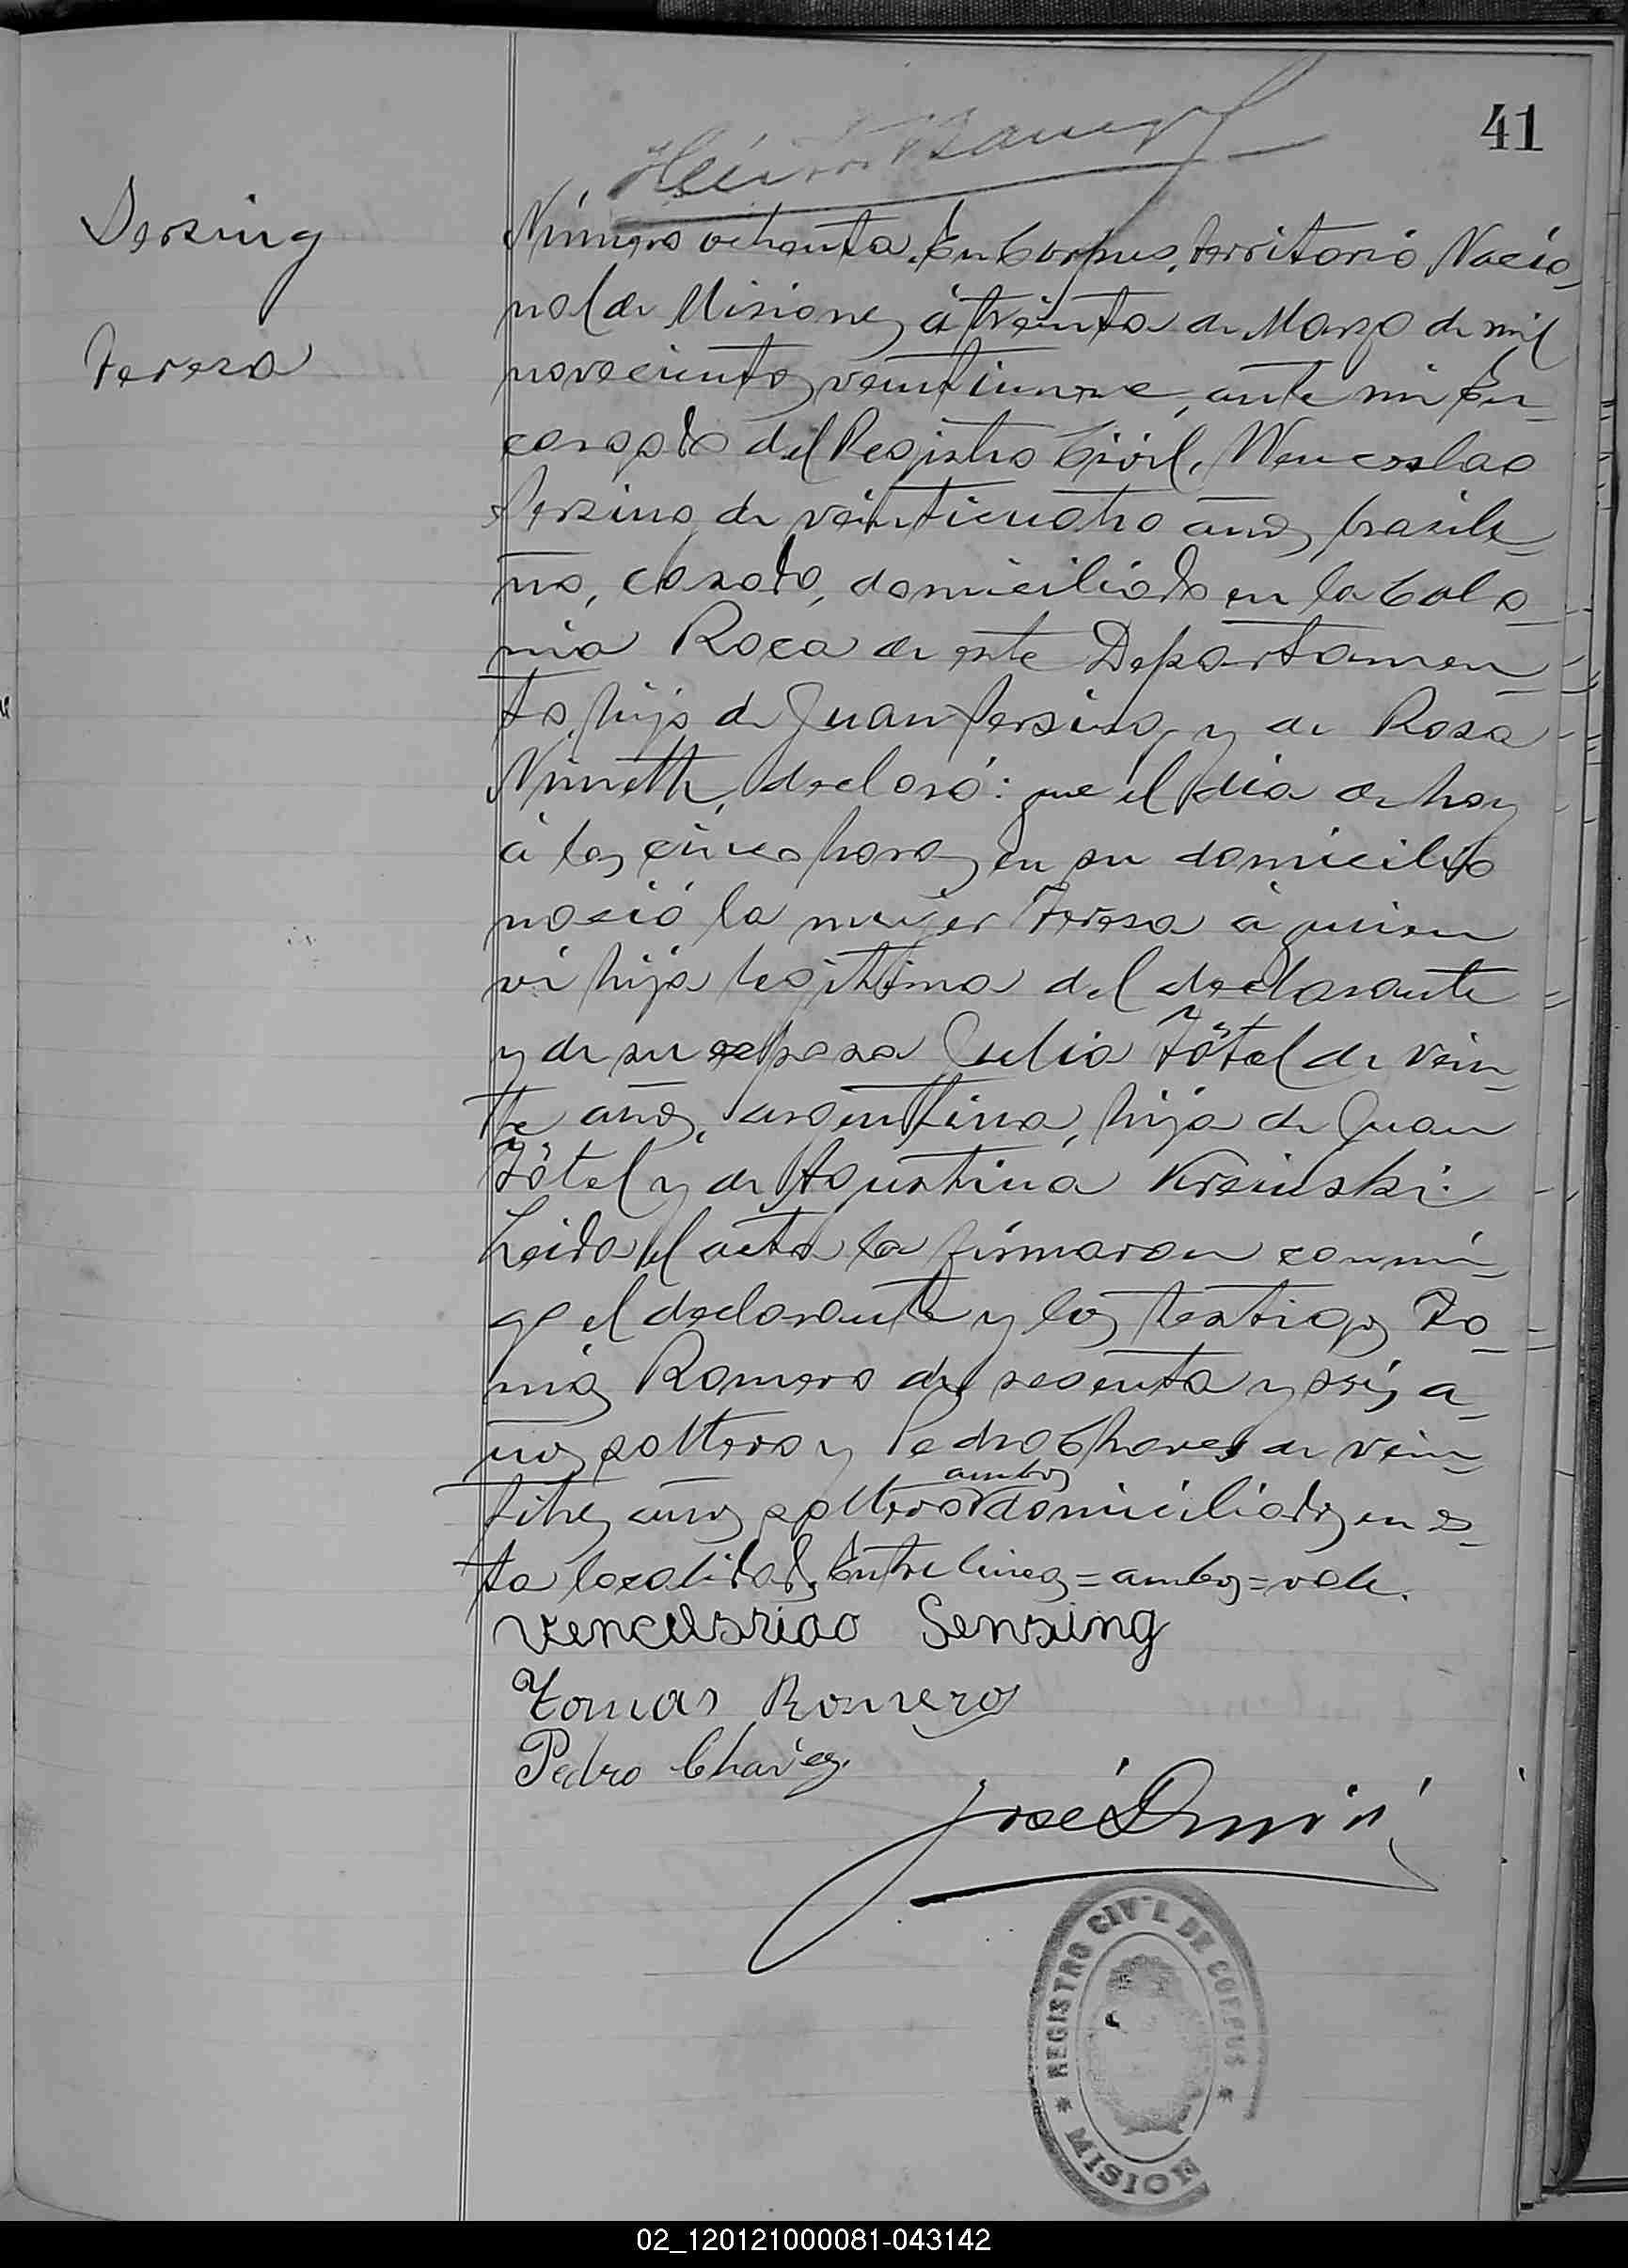 41
Sersing
Teresa
Número ochenta. En Corpus, territorio Nacio-
nal de Misiones, á treinta de Marzo de mil
novecientos veintinueve, ante mi En-
cargado del Registro Civil, Wenceslao
Sersing, de veinticuatro años, brasile-
ño, casado, domiciliado en la Colo-
nia Roca de este Departamen-
to, hijo de Juan Sersing y de Rosa
Nimeth, declaró: que el dia de hoy
á las cinco horas en su domicilio
nació la mujer Teresa á quien
vi hija legitima del declarante
y de su esposa Julia Tötel de vein-
te años, argentina, hija de Juan
Tötel y de Agustina Kreinski.
Leida el acta la firmaron conmi-
go el declarante y los testigos To-
más Romero de sesenta y seis a-
ños, soltero y Pedro Chaves de vein-
titres años, soltero ambos domiciliados en es-
ta localidad. Entre lineas = ambos = vale.
Sensing
Tomas Romero
Pedro Chavez.
José
REGISTRO CIVIL DE CORPUS
* MISION *
02_120121000081-043142